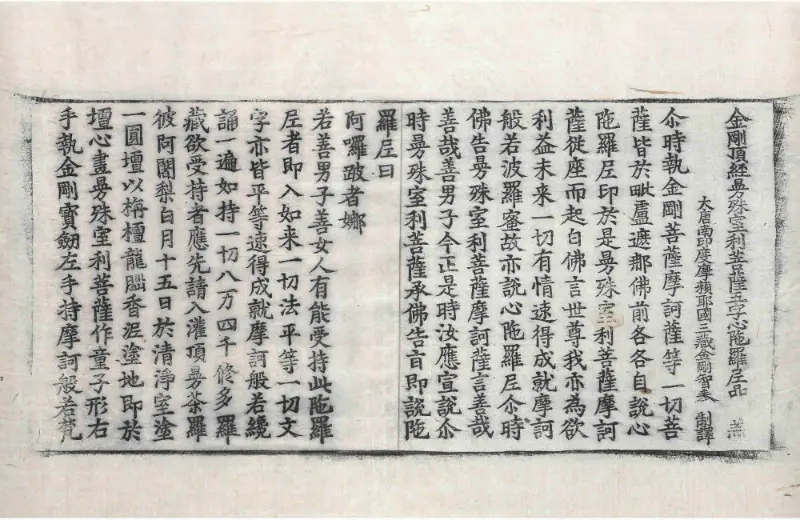 金剛頂經曼殊室利菩薩五字心陁羅尼品
大唐南印度摩頼耶國三藏金剛智奉 制譯
尒時執金剛菩薩摩訶薩等一切菩
薩皆於毗盧遮那佛前各各自說心
陁羅尼印於是曼殊室利菩薩摩訶
薩從座而起白佛言世尊我亦為欲
利益未来一切有情速得成就摩訶
般若波羅蜜故亦說心陁羅尼尒時
佛告曼殊室利菩薩摩訶薩言善哉
善哉善男子今正是時汝應宣說尒
時曼殊室利菩薩承佛告旨即說陁
羅尼曰
阿囉跛者娜
若善男子善女人有能受持此陁羅
尼者即入如来一切法平等一切文
字亦皆平等速得成就摩訶般若纔
誦一遍如持一切八万四千修多羅
藏欲受持者應先請入灌頂曼荼羅
彼阿闍梨白月十五日於清淨室塗
一圓壇以栴檀龍腦香泥塗地即於
壇心畫曼殊室利菩薩作童子形右
手執金剛寶劒左手持摩訶般若梵